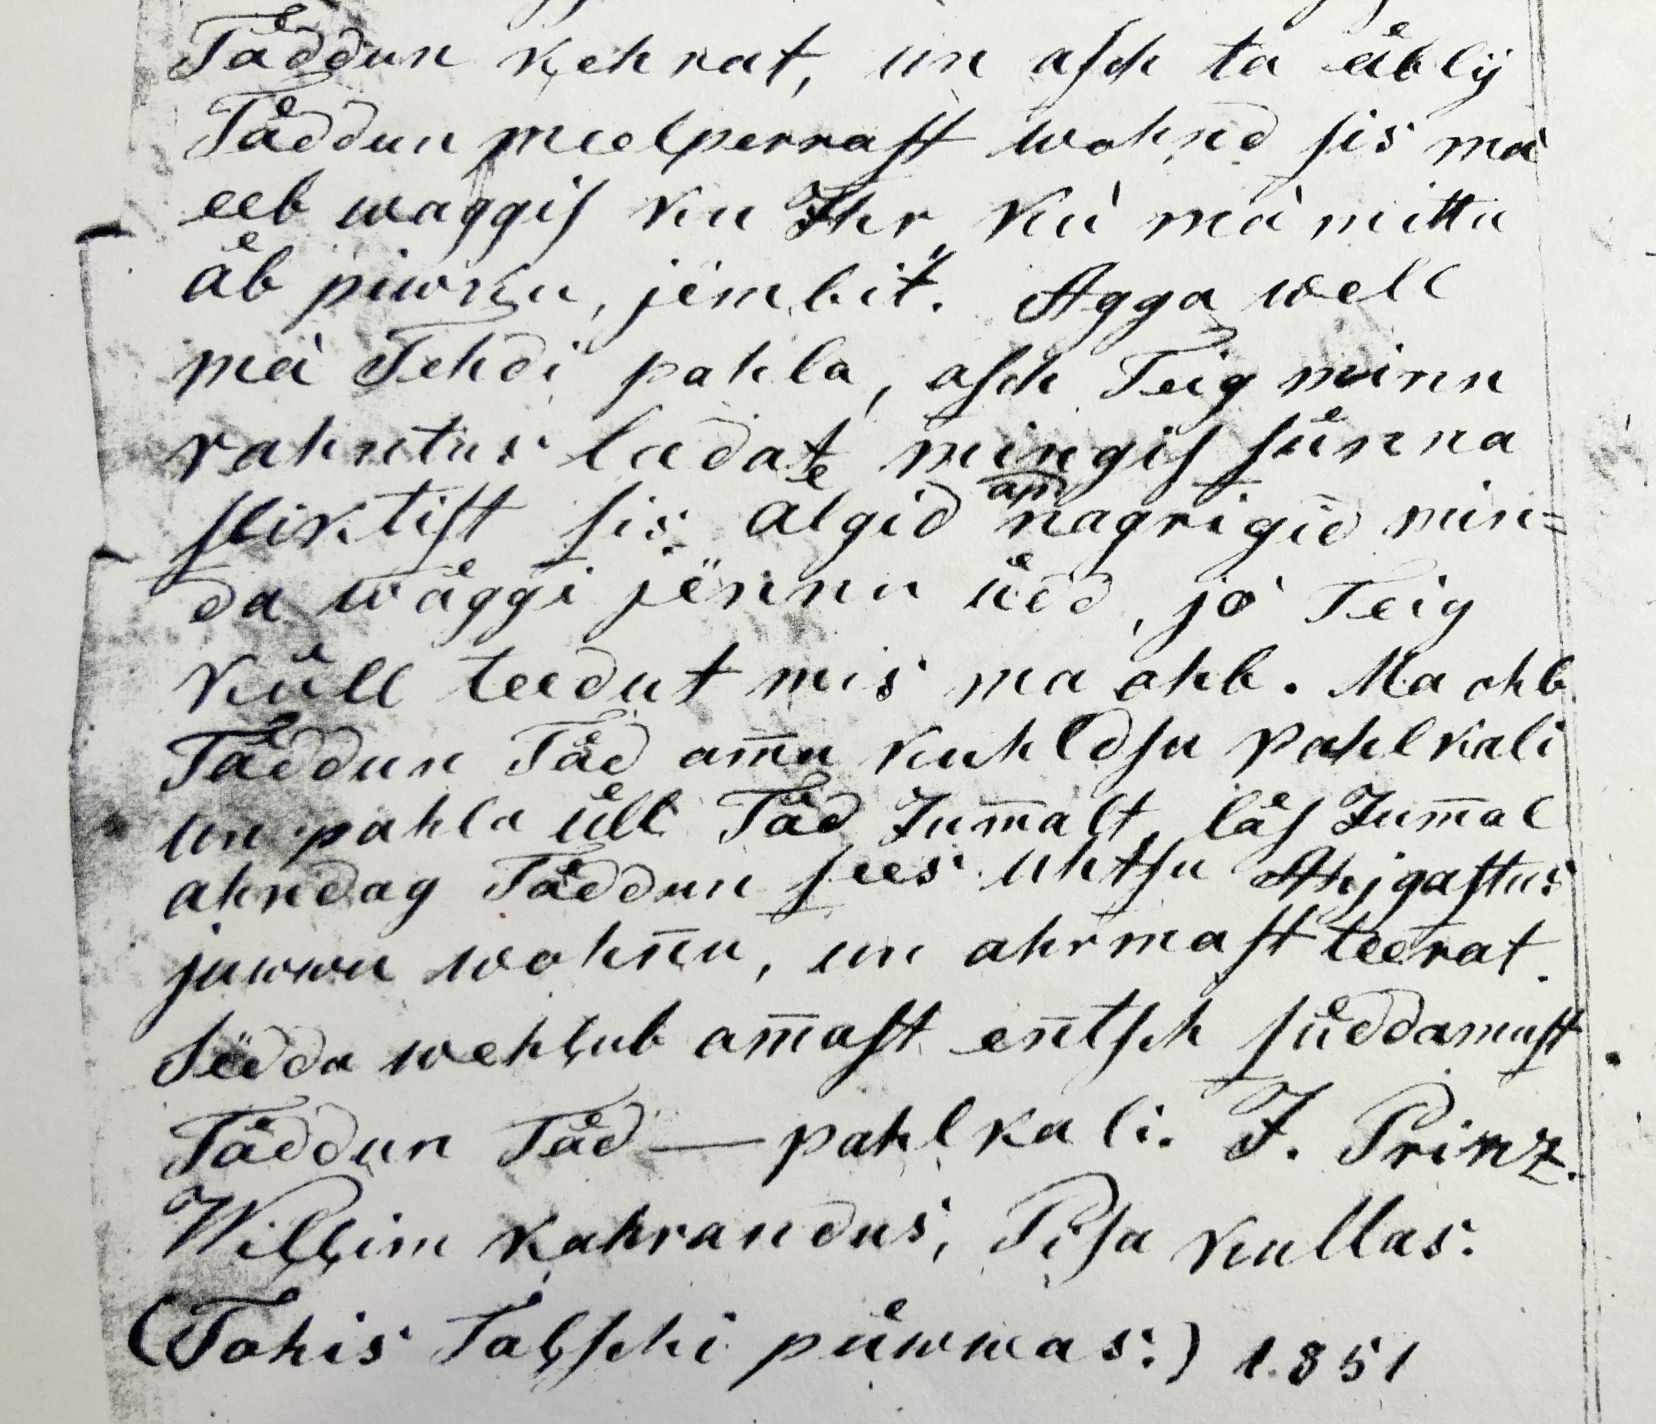 Tåddun ķehrat, un asch ta åb lij
Tåddun meelperrast wohnd sis ma
eeb waggis ku Ihr, ku mà mittu
åb piwķu, jembit. Agga well
mà Tehdi pahla, asch Teig minn
rahntus leedate mingis sünna
sliktist sis algid am nagrigid min=
da wäggi jennu üdd, jo Teig
küll teedut mis ma ohb. Ma ohb
Tåddun Tåd am̄u kuhldsu pahlkali
un pahlu üll Tåd Jum̄alt, lås Jum̄al
ahndag Tåddun sees uhtsu Ahjgastus
juwwu wohn̄u, un ahrmast teerat.
Sedda wehļub am̄ast en̄tsch süddamust.
Tåddun Tåd — pahlkali. J. Prinz.
Wiļļim ķahrandus, Pisa kullas.
(Tohis Taļschi püwwas.) 1851